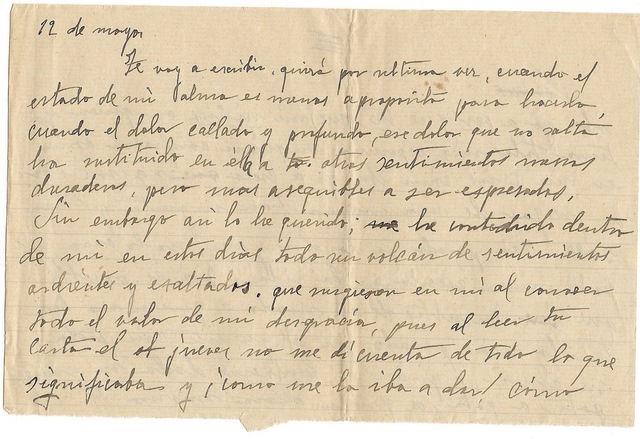 12 de mayo,
Te voy a escribir, quizá por ultima vez, cuando el
estado de mi alma es menos apropósito para hacerlo,
cuando el dolor callado y profundo, ese dolor que no salta
ha sustituido en ella a otros sentimientos menos
duraderos, pero mas asequibles a ser espresados.
Sin embargo asi lo he querido; he contenido dentro
de mi en estos dias todo un volcán de sentimientos
ardientes y esaltados, que surgieron en mi al conocer
todo el valor de mi desgracia, pues al leer tu
carta el jueves no me di cuenta de todo lo que
significaba y ¡como me la iba a dar! cómo